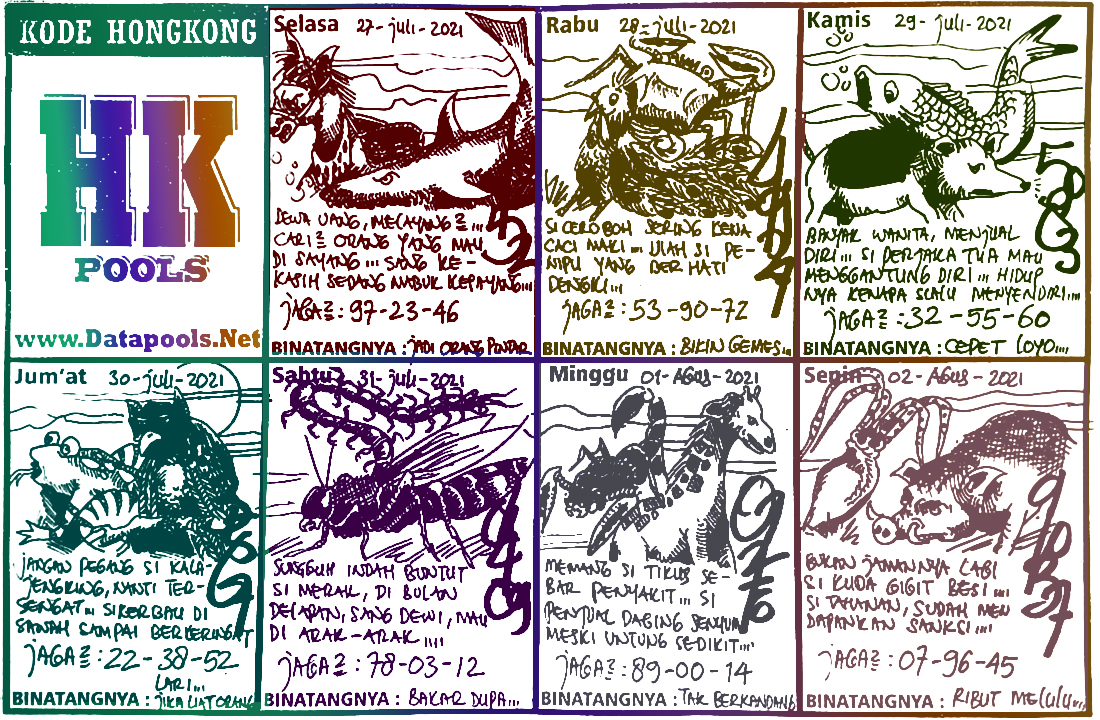 KODE HONGKONG
HK
POOLS
www.Datapools.Net
Selasa 27-juli-2021
DEWA UANG, MELAYANG 2...
CARI 2 ORANG YANG MAU
DI SAYANG ... SANG KE-
KASIH SEDANG MABUK KEPAYANG...
jAGA2 : 97-23-46
BINATANGNYA : jADI ORANG PINTAR
Rabu 28-juli-2021
SI CEROBOH SERING KENA
CACI MAKI ... ULAH SI PE-
NIPU YANG BERHATI
DENGKI...
jAGA2 : 53-90-72
BINATANGNYA : BIKIN GEMES...
Kamis 29-juli-2021
BANYAK WANITA, MENJUAL
DIRI ... SI PERJAKA TUA MAU
MENGGANTUNG DIRI ... HIDUP
NYA KENAPA SLALU MENYENDIRI...
jAGA2 : 32-55-60
BINATANGNYA : CEPET LOYO...
Jum'at 30-juli-2021
JANGAN PEGANG SI KALA-
JENGKING, NANTI TER-
SENGAT... SI KERBAU DI
SAWAH SAMPAI BERKERINGAT
jAGA2 : 22-38-52
LARI...
BINATANGNYA : jIKA LIAT ORANG
Sabtu 31-juli-2021
SUNGGUH INDAH BUNTUT
SI MERAK, DI BULAN
DELAPAN, SANG DEWI, MAU
DI ARAK-ARAK ....
jAGA2 : 78-03-12
BINATANGNYA : BAKAR DUPA...
Minggu 01-AGUS-2021
MEMANG SI TIKUS SE-
BAR PENYAKIT... SI
PENJUAL DAGING SENYUM
MESKI UNTUNG SEDIKIT...
jAGA2 : 89-00-14
BINATANGNYA : TAK BERKANDANG
Senin 02-AGUS-2021
BUKAN JAMANNYA LAGI
SI KUDA GIGIT BESI ...
SI TAHANAN, SUDAH MEN
DAPANKAN SANKSI...
jAGA2 : 07-96-45
BINATANGNYA : RIBUT MELULU...